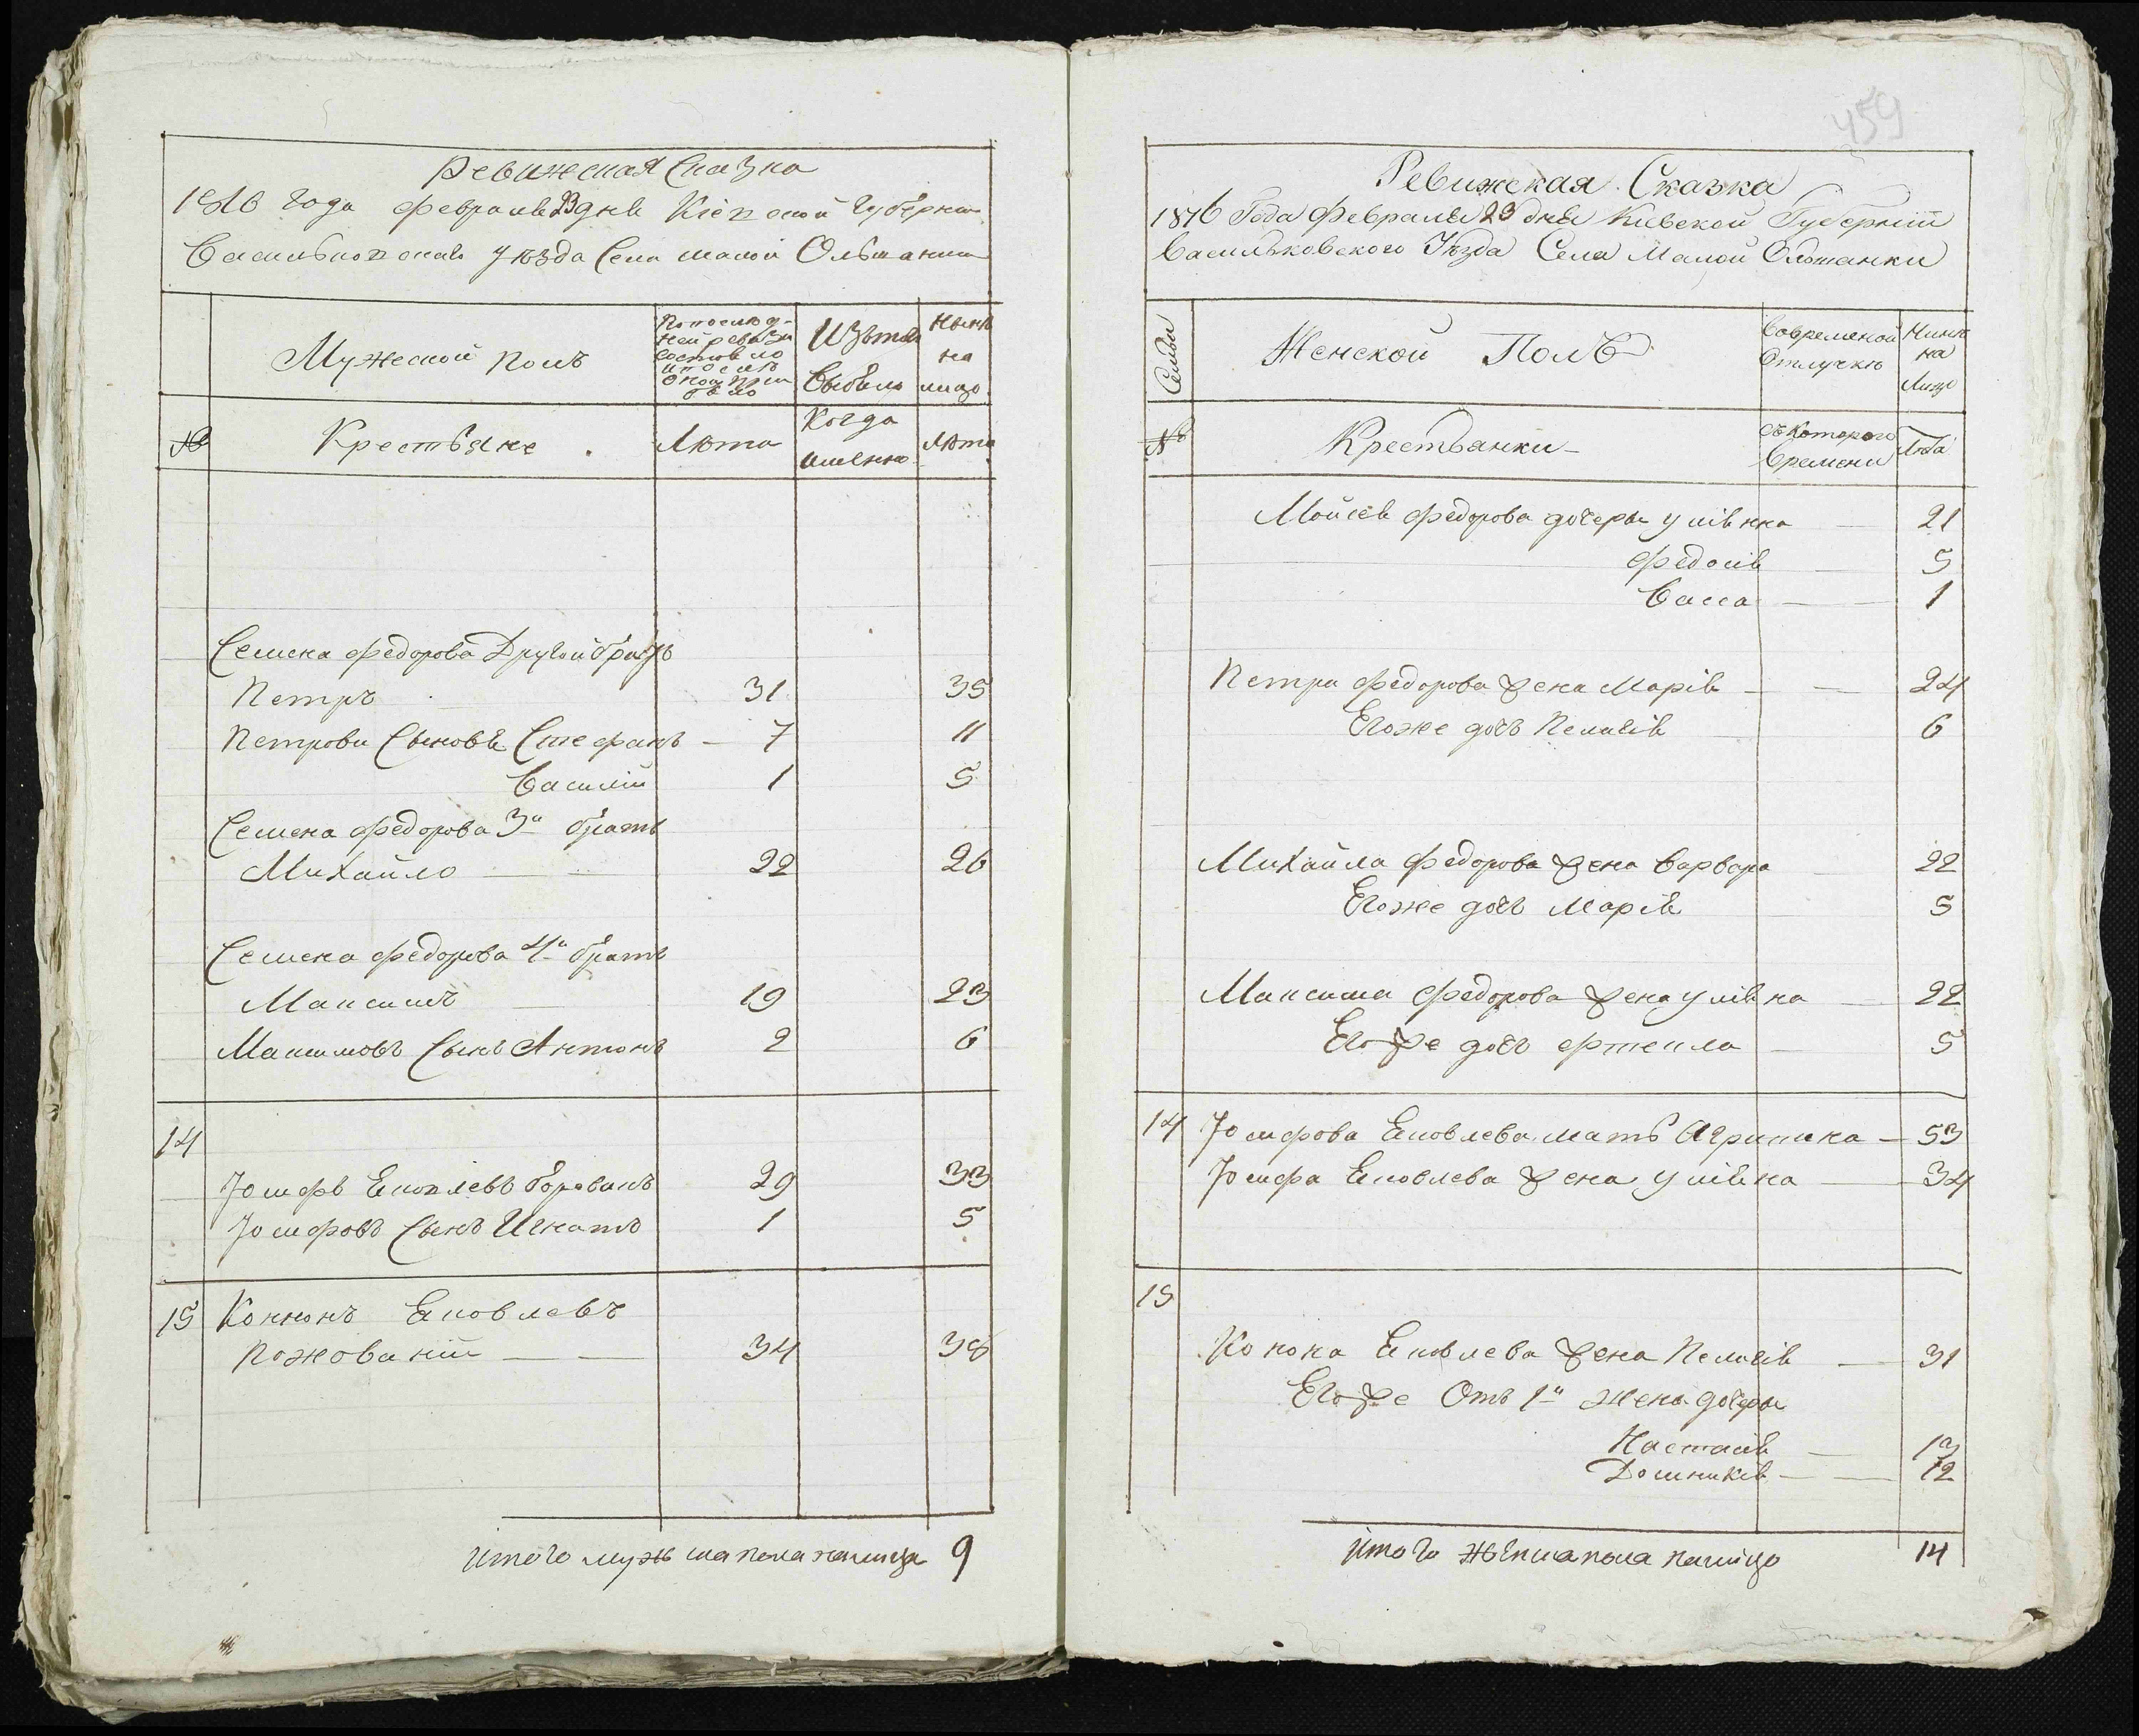 Ревижская Сказка
1816 года февраля 23 дня Кіевской губерніи
Васильковскаго уѣзда Села малой Ольшанки
Мужеской полъ
По послѣд-
ней ревизіи
состояло
и послѣ
было
Изъ того
Выбыло
Нынѣ
на
лицо
№
Крестьяне
Лѣта
Когда
именно
Лѣта
Семена Федорова Другой братъ
Петръ 31 35
Петрови Сыновья Стефанъ 7 11
Василій 1 5
Семена Федорова 3й братъ
Михайло 22 26
Семена Федорова 4й братъ
Максимъ 19 23
Максимовъ Сынъ Антонъ 2 6
14
Іосифъ Яковлевъ 29 33
Іосифовъ Сынъ Игнатъ 1 5
15 Кононъ Яковлевъ
34 38
итого мужска пола налицо 9
459
Ревижская Сказка
1816 Года Февраля 23 дня Киевской Губерніи
Васильковского Уѣзда Села Малой Ольшанки
Семьи
Женской Полъ
Во временной
Отлучкѣ
Нынѣ
на
Лицо
№
Крестьянки
съ Которого
Времени
Лѣта
Федорова дочеры Улiянна 21
Федосія 5
Васса 1
Петра Федорова жена Марія 24
Егоже дочь Пелагія 6
Михайла Федорова жена Варвара 22
Егоже дочь Марія 5
Максима Федорова жена Уліяна 22
Егоже дочь Фтекла 5
14 Іосифова Яковлева мать Агрипина 53
Іосифа Яковлева жена Уліяна 34
15
Конона Яковлева жена Пелагія 31
Егоже Отъ 1й жены дочеры
Настасія 13
Домникія 12
итого женска пола налицо 14